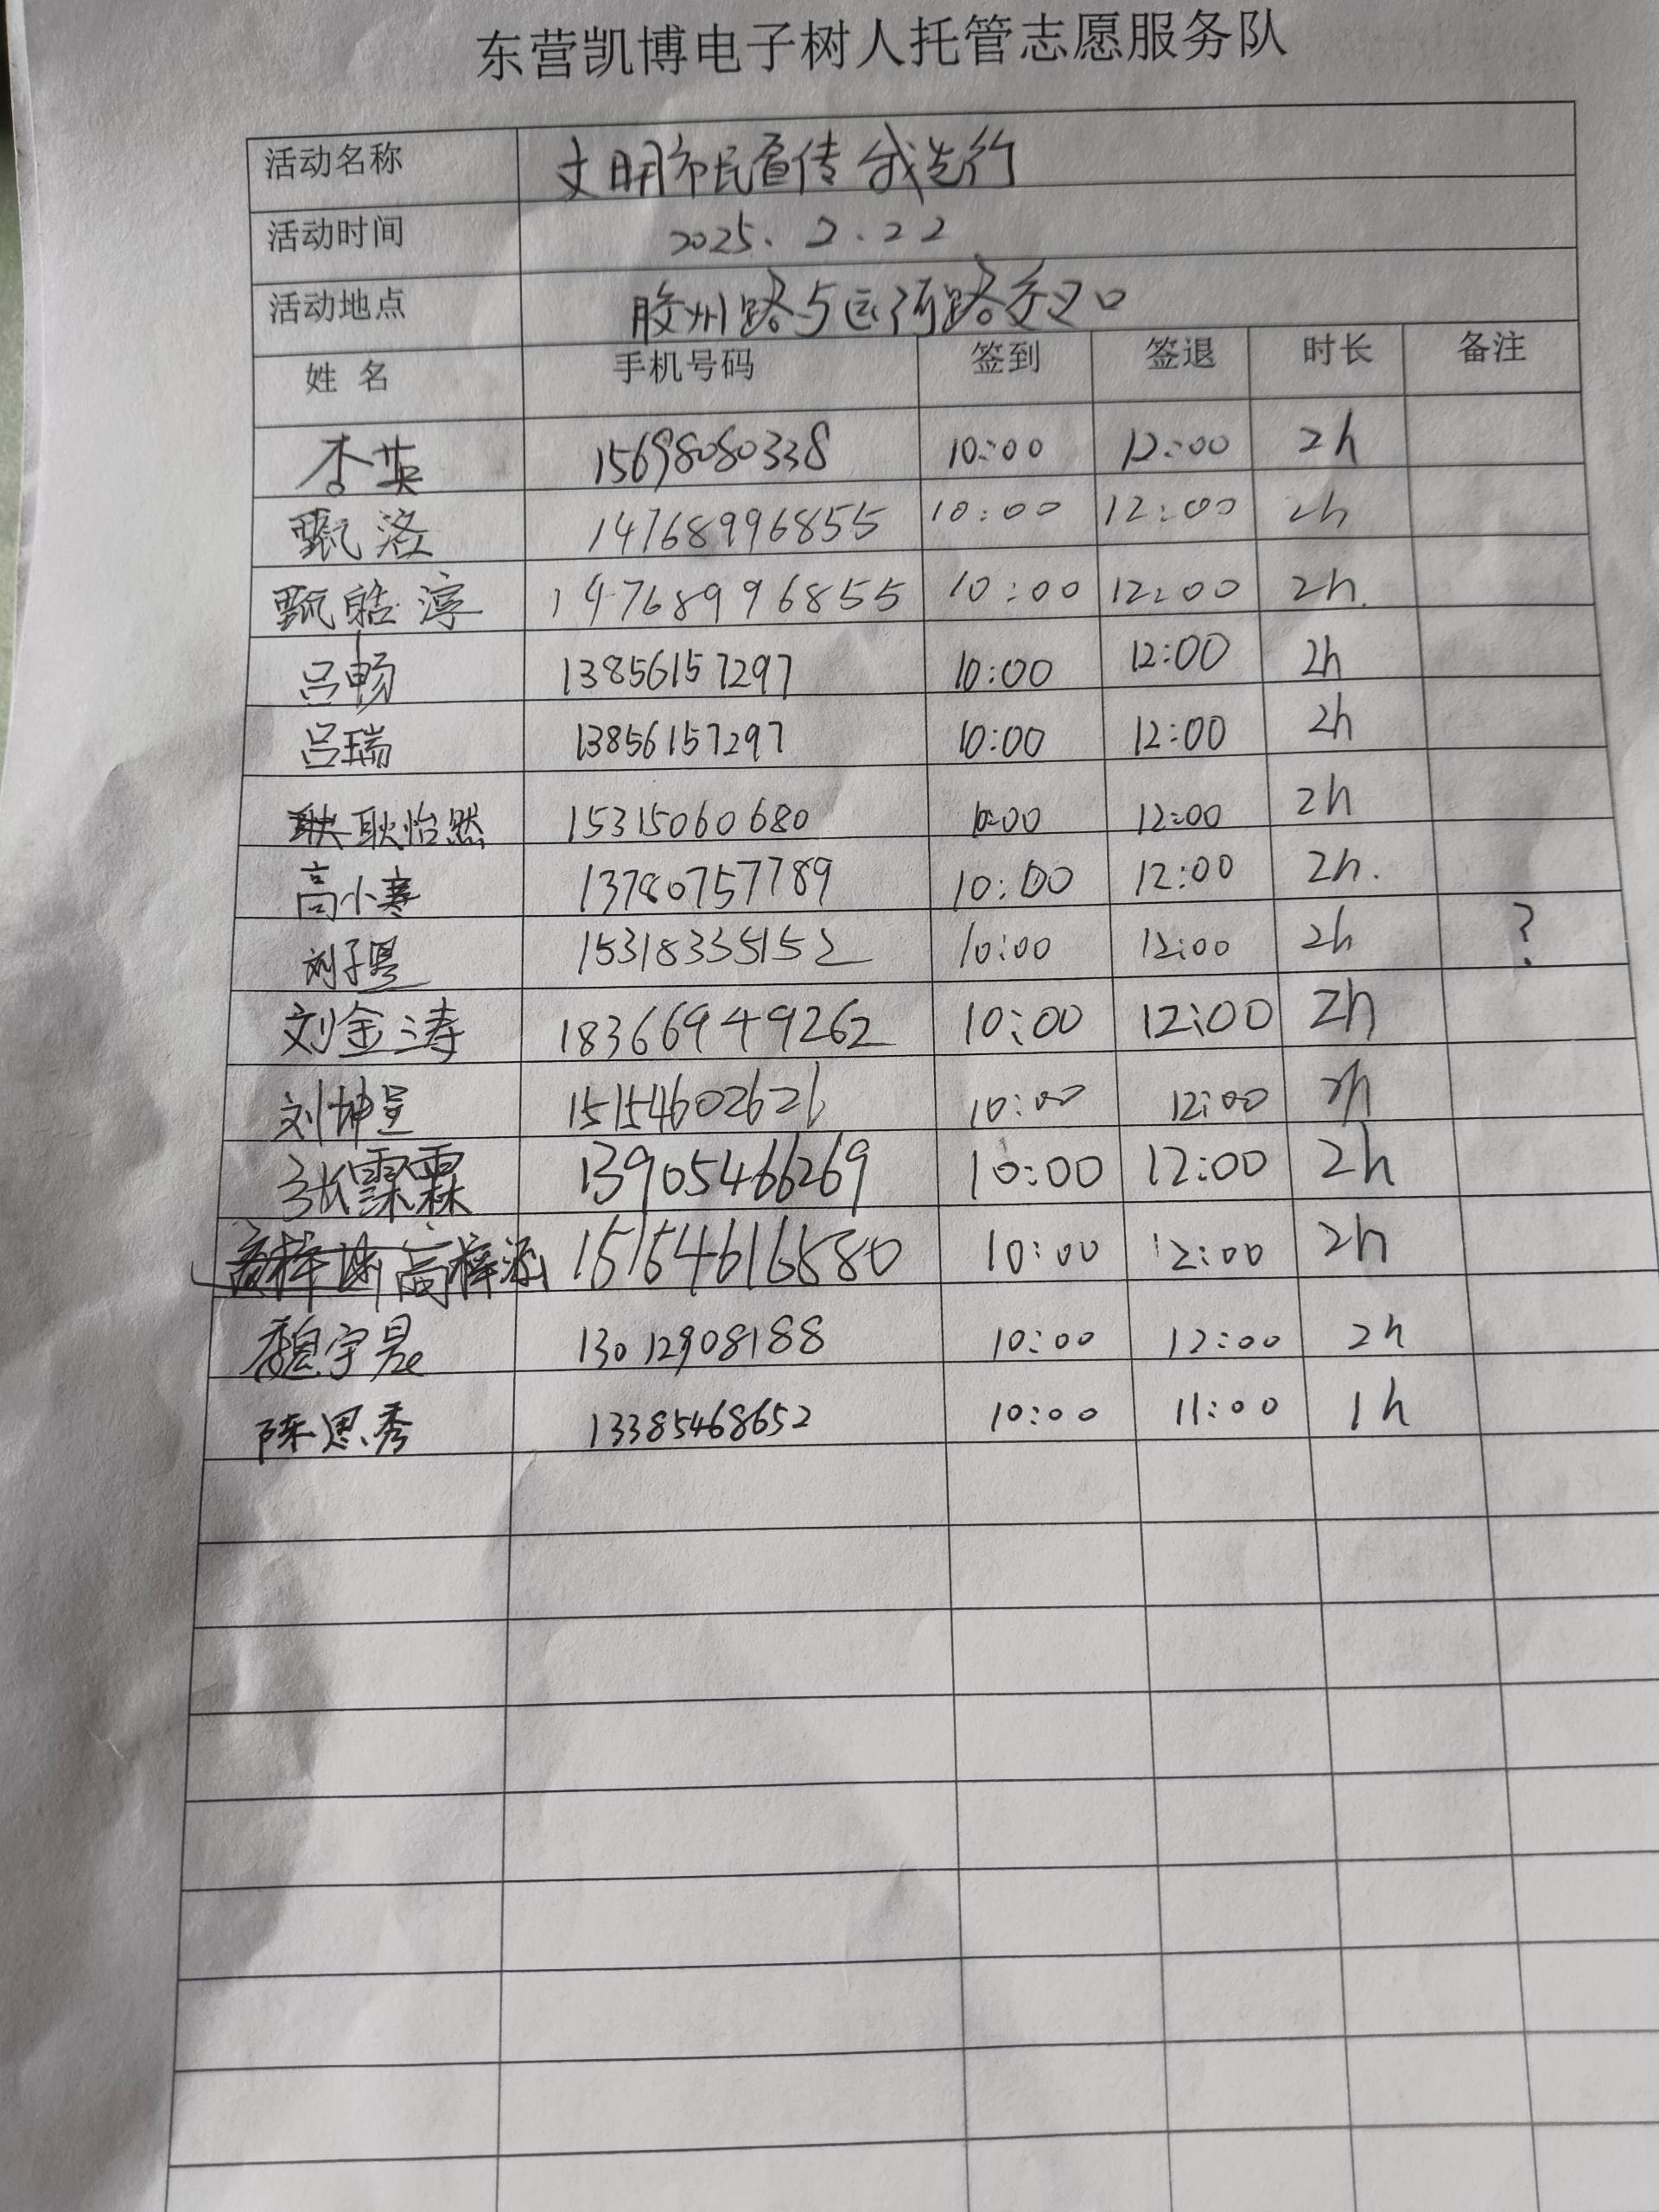 东营凯博电子树人托管志愿服务队
活动名称 文明市民宣传 我先行
活动时间 2025.2.22
活动地点 胶州路与运河路交叉口
姓 名 手机号码 签到 签退 时长 备注
李英 15698080338 10:00 12:00 2h
甄洛 14768996855 10:00 12:00 2h
甄皓淳 14768996855 10:00 12:00 2h.
吕畅 13856157297 10:00 12:00 2h
吕瑞 13856157297 10:00 12:00 2h
耿怡然 15315060680 10:00 12:00 2h
高小寒 13780757789 10:00 12:00 2h.
刘子墨 15318335152 10:00 12:00 2h ?
刘金涛 18366949262 10:00 12:00 2h
刘坤呈 15154602626 10:00 12:00 2h
张霂霖 13905466269 10:00 12:00 2h
高梓涵 15154616580 10:00 12:00 2h
魏宇晟 13012908188 10:00 12:00 2h
陈恩秀 13385468652 10:00 11:00 1h